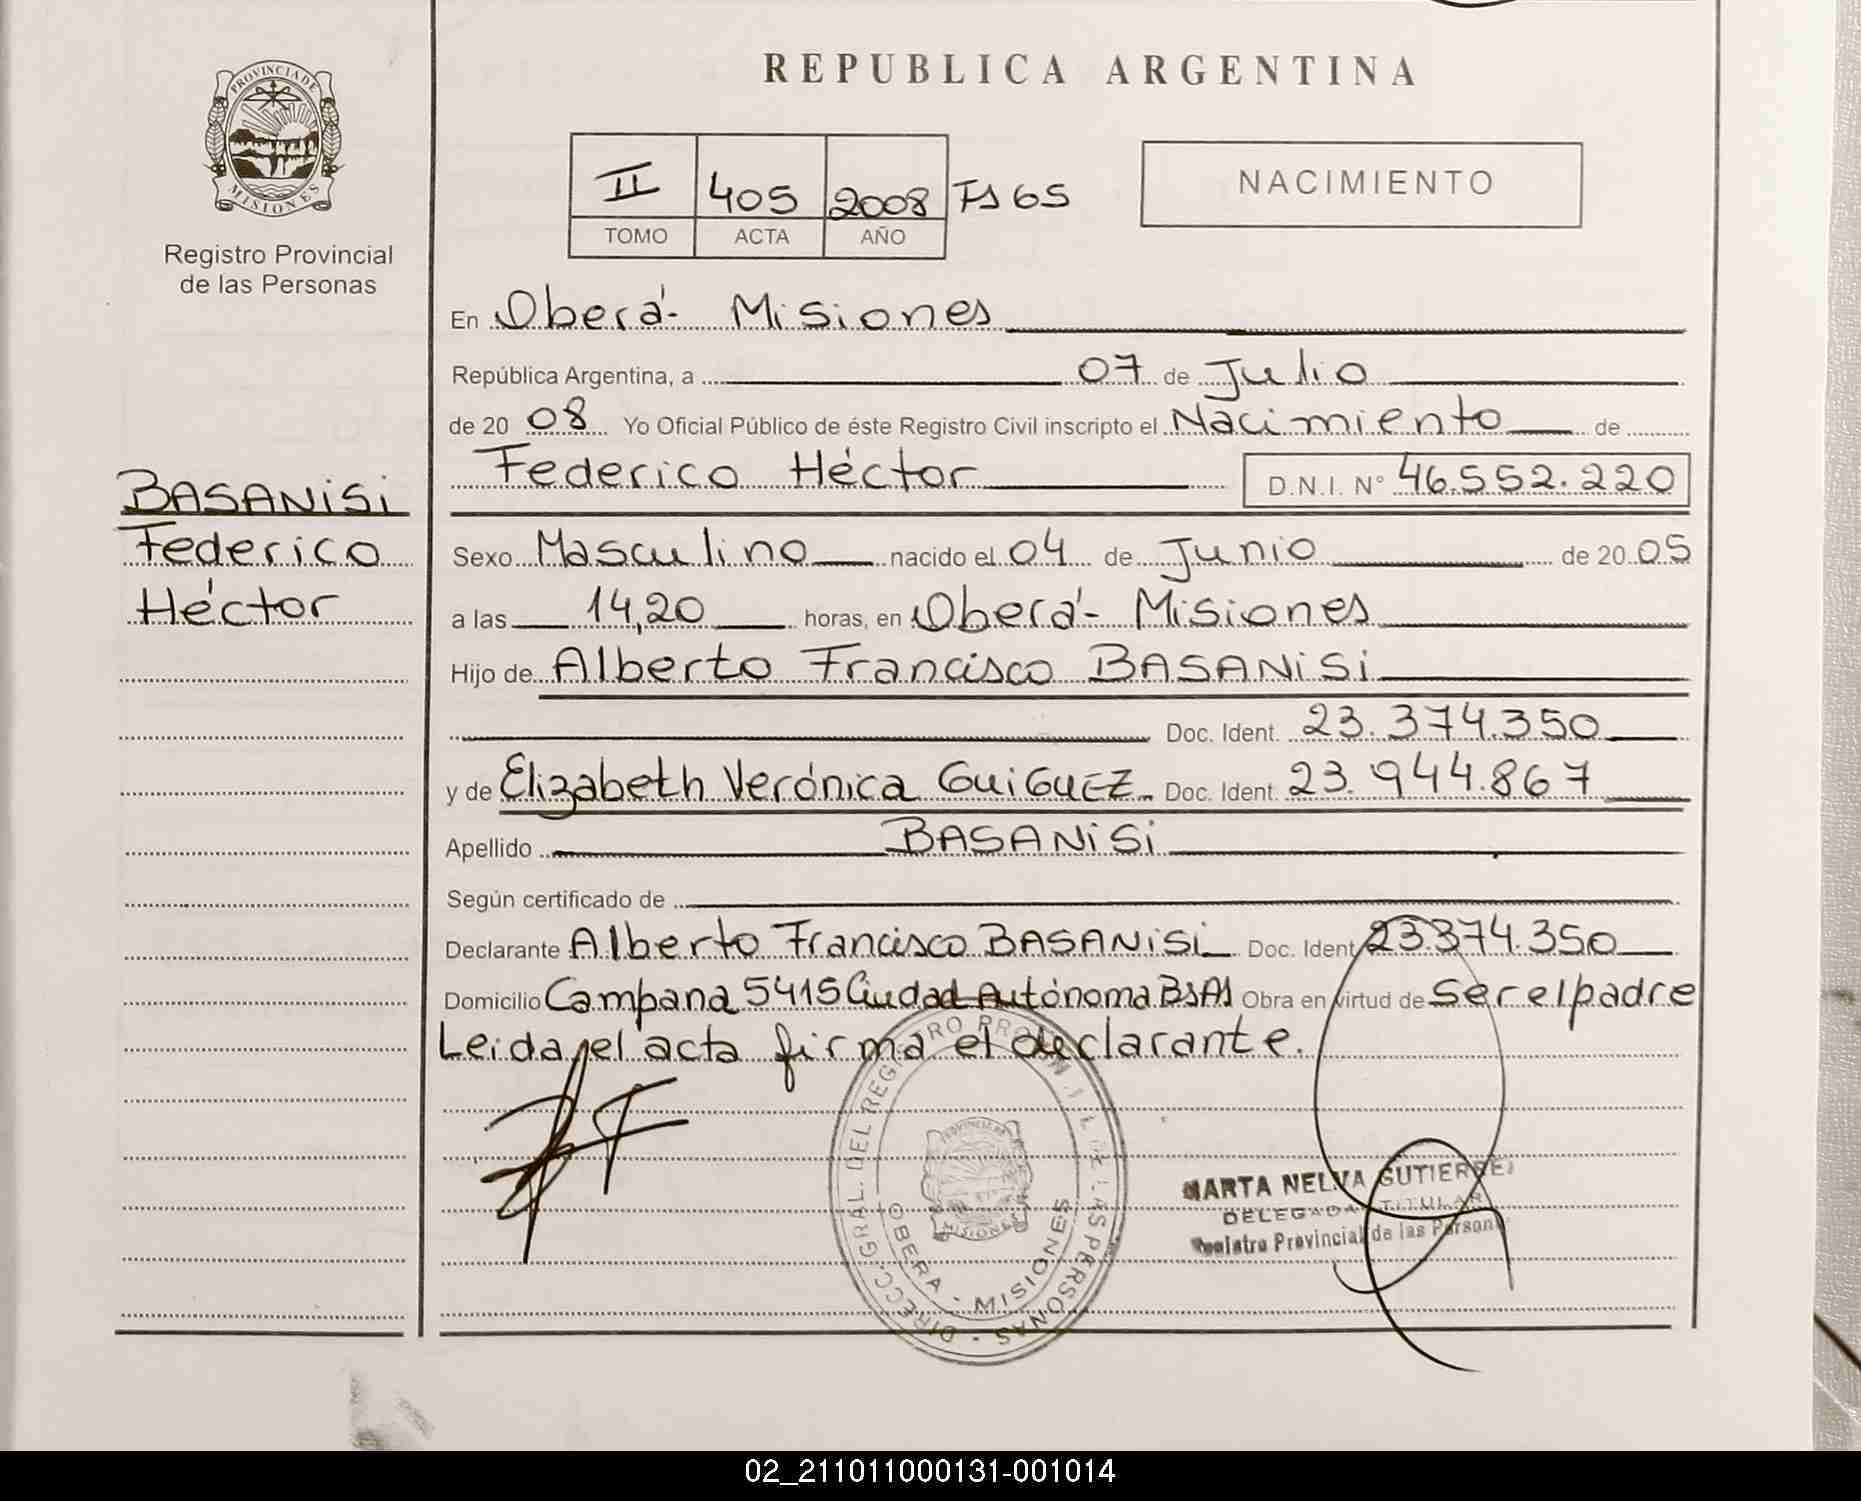 REPUBLICA ARGENTINA
PROVINCIA DE
MISIONES
Registro Provincial
de las Personas
II 405 2008 Fs 65
TOMO ACTA AÑO
NACIMIENTO
BASANiSi
Federico
Héctor
En Oberá- Misiones
República Argentina, a 07 de Julio
de 20 08 Yo Oficial Público de éste Registro Civil inscripto el Nacimiento de
Federico Héctor D.N.I. N° 46.552.220
Sexo Masculino nacido el 04 de Junio de 20 05
a las 14,20 horas, en Oberá- Misiones
Hijo de Alberto Francisco BASANiSi
Doc. Ident. 23.374.350
y de Elizabeth Verónica GuiGuEZ Doc. Ident. 23.944.867
Apellido BASANiSi
Según certificado de
Declarante Alberto Francisco BASANiSi Doc. Ident 23.374.350
Domicilio Campana 5415 Ciudad Autónoma BsAs Obra en virtud de ser el padre
Leida el acta firma el declarante.
DIRECC. GRAL. DEL REGISTRO DE LAS PERSONAS
OBERA - MISIONES
MARTA NELVA GUTIERREZ
DELEGADA TITULAR
Registro Provincial de las Person
02_211011000131-001014